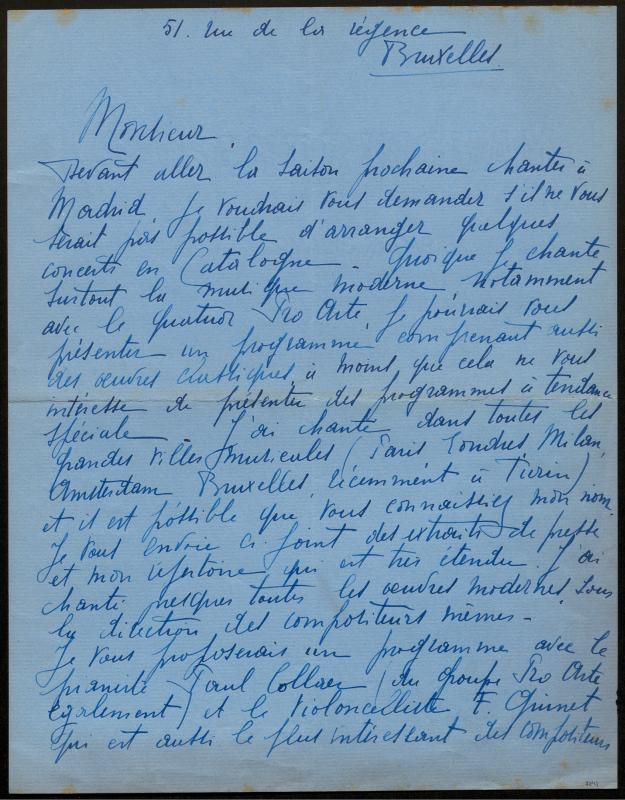 51. rue de la régence
Bruxelles.
Monsieur,
Devant aller la saison prochaine chanter à
Madrid je voudrais vous demander s'il ne vous
serait pas possible d'arranger quelques
concerts en Catalogne. Quoique je chante
surtout la musique moderne notamment
avec le quatuor Pro Arte je pourrais vous
présenter un programme comprenant aussi
des œuvres classiques, à moins que cela ne vous
intéresse de présenter des programmes à tendance
spéciale. J'ai chanté dans toutes les
grandes villes musicales (Paris Londres Milan,
Amsterdam Bruxelles, récemment à Turin)
et il est possible que vous connaissiez mon nom.
Je vous envoie ci joint des extraits de presse
et mon répertoire qui est très étendu. J'ai
chanté presques toutes les œuvres modernes sous
la direction des compositeurs mêmes -
Je vous proposerais un programme avec le
pianiste Paul Collaer (du groupe Pro Arte
également) et le violoncelliste F. Quinet
qui est aussi le plus intéressant des compositeurs